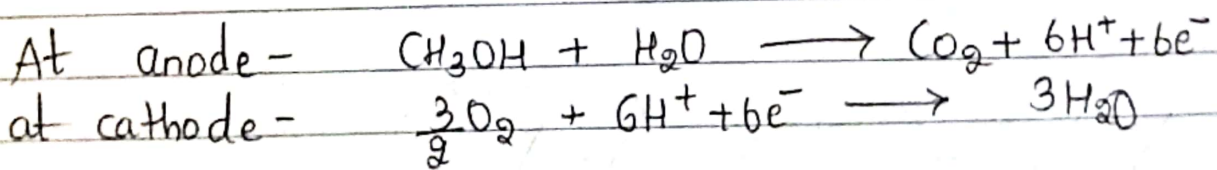 At anode - CH₃OH + H₂O ⟶ CO₂ + 6H⁺ + 6e⁻
at cathode - 3/2 O₂ + 6H⁺ + 6e⁻ ⟶ 3H₂O